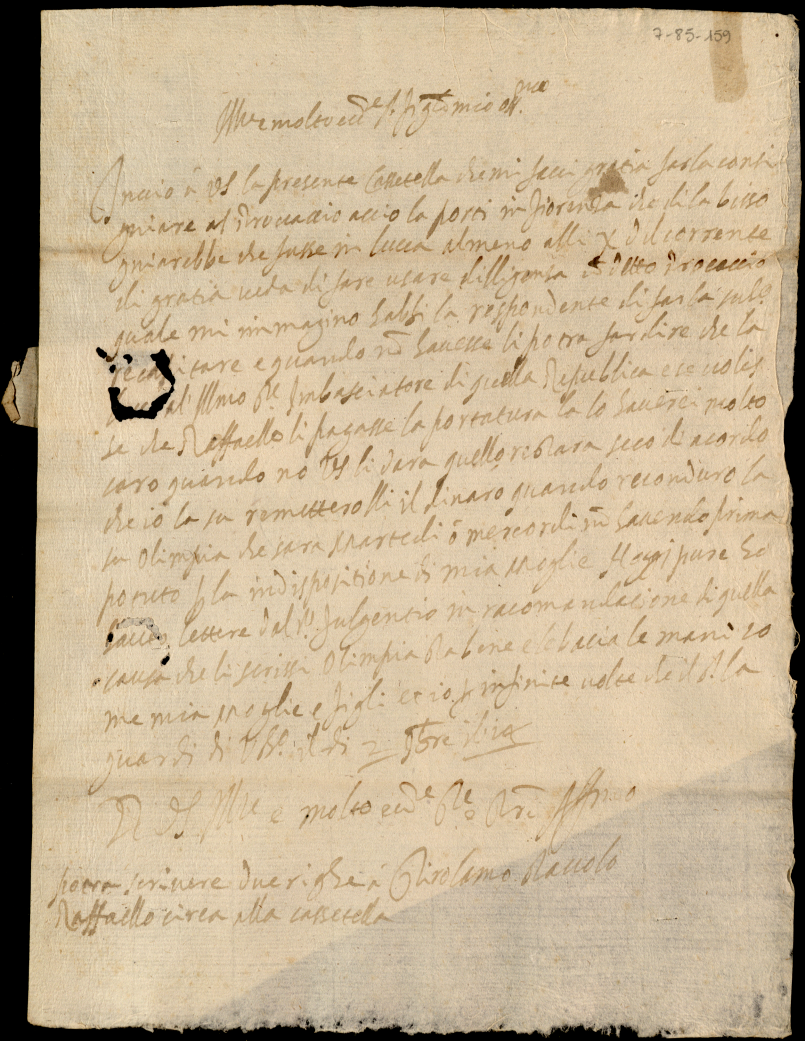 7-85-159
Ill.re e molto ecc.e S.r
Invio à VS la presente Cassetella che mi facci gratia farla consi
gniare al Procaccio accio la porti in Fiorenza che di la bisso
gniarebbe che fusse in lucca almeno alli X del corrente
di gratia veda di fare usare dilligensa à detto Procaccio
quale mi immagino habbi la respondente di farla sub.o
recapitare e quando nõ havesse li potra far dire che la
al Illmo Sr Imbasciatore di quella Republica e se voles
se che Raffaello li pagasse la portatura la lo haverei molto
caro quando no VS li dara quello restara seco di acordo
che io la su remetterolli il dinaro quando reconduro la
su Olimpia che sara Martedi ò mercordi nõ havendo prima
potuto p la indispositione di mia Moglie pure hò
lettere dal Sr Fulgentio in racomandacione di quella
causa che li scrissi Olimpia sta bene e le bacia le mani co
me mia Moglie e figli et io p infinite volte che il Sr la
guardi di il di 2
Di VS Ill.re e molto ecc.e
potra scrivere due righe à Girolamo
Raffaello circa alla cassetella